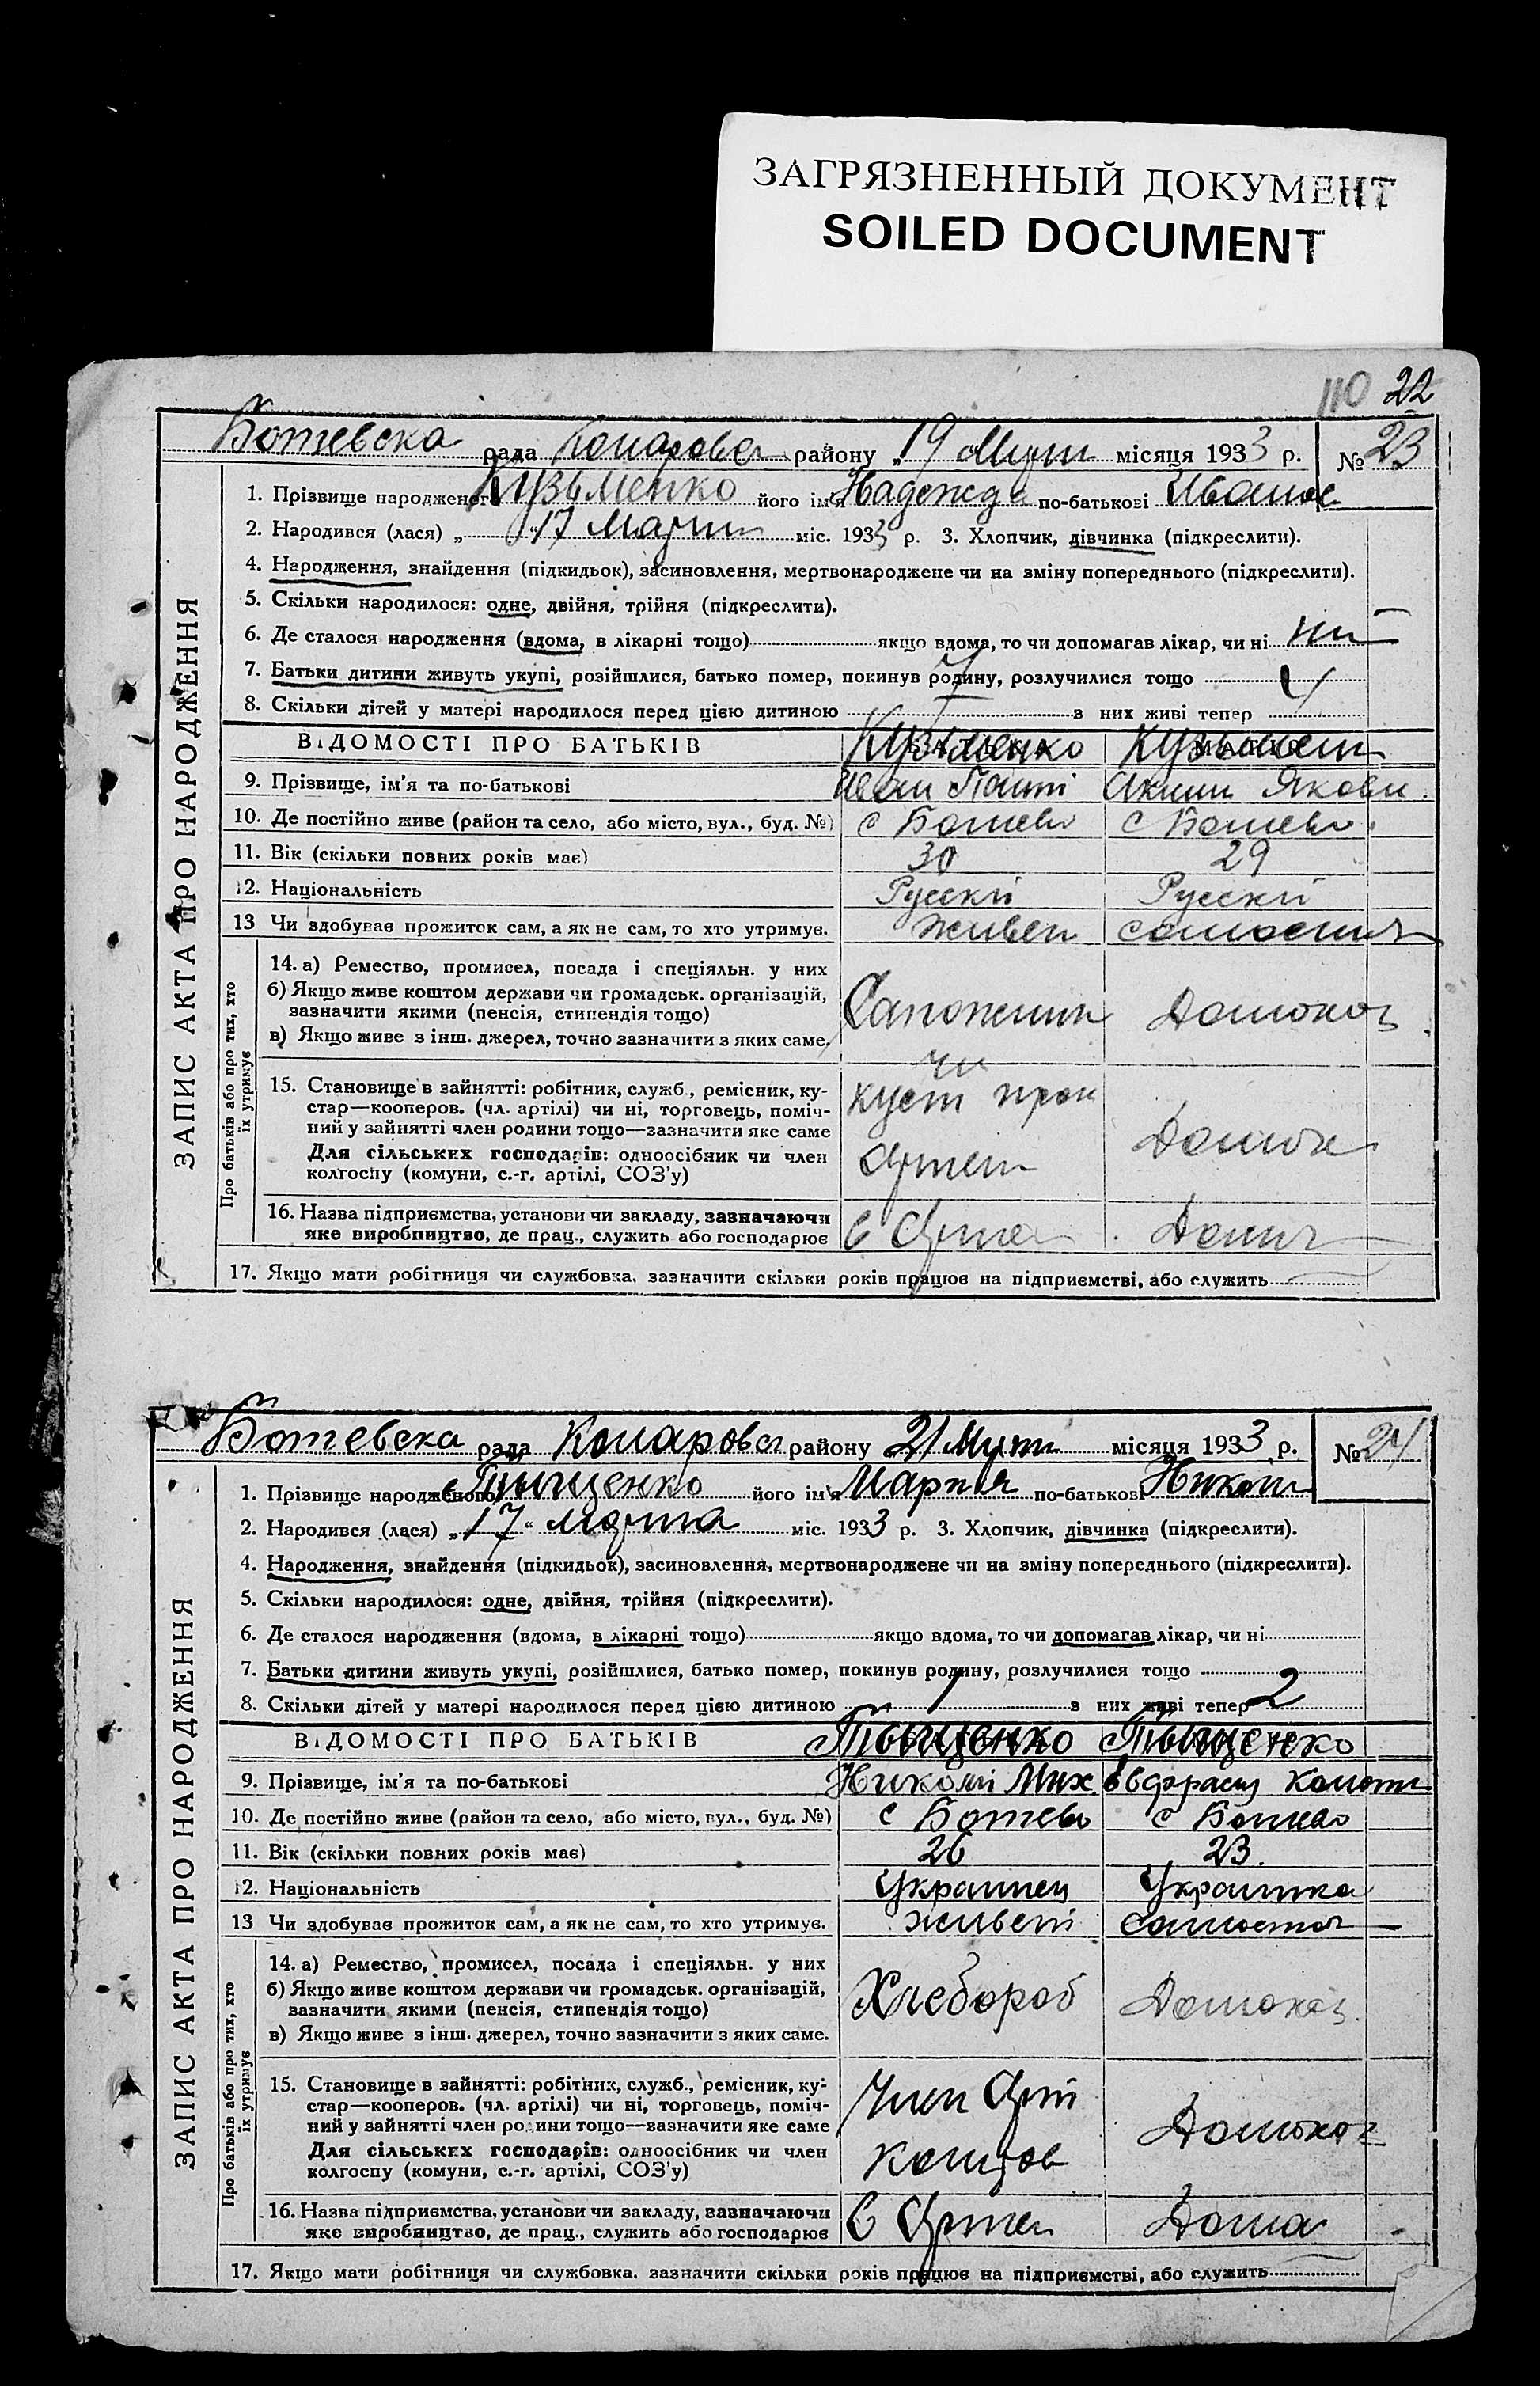 ЗАГРЯЗНЕННЫЙ ДОКУМЕНТ
SOILED DOCUMENT
110 22
Ботевска рада район у „19 місяця 1933 р. № 23
ЗАПИС АКТА ПРО НАРОДЖЕННЯ
1. Прізвище народженог Кузьменко його ім'я Надежда по-батькові
2. Народився (лася) „17 міс. 1933 р. 3. Хлопчик, дівчинка (підкреслити).
4. Народження, знайдення (підкидьок), засиновлення, мертвонароджене чи на зміну попереднього (підкреслити).
5. Скільки народилося: одне, двійня, трійня (підкреслити).
6. Де сталося народження (вдома, в лікарні тощо) якщо вдома, то чи допомагав лікар, чи ні
7. Батьки дитини живуть укупі, розійшлися, батько помер, покинув родину, розлучилися тощо
8. Скільки дітей у матері народилося перед цією дитиною 7 з них живі тепер 4
ВІДОМОСТІ ПРО БАТЬКІВ Кузьменко
9. Прізвище, ім'я та по-батькові
10. Де постійно живе (район та село, або місто, вул., буд. №) с Ботево с Ботево
11. Вік (скільки повних років має) 30 29
12. Національність Русскій Русскій
13 Чи здобував прожиток сам, а як не сам, то хто утримує. живет
Про батьків або про тих, хто їх утримує
14. а) Ремество, промисел, посада і спеціяльн. у них
б) Якщо живе коштом держави чи громадськ. організацій,
зазначити якими (пенсія, стипендія тощо) Сапожник Домохоз
в) Якщо живе з інш. джерел, точно зазначити з яких саме.
15. Становище в зайнятті: робітник, служб., ремісник, ку-
стар—кооперов. (чл. артілі) чи ні, торговець, поміч-
ний у зайнятті член родини тощо—зазначити яке саме
Для сільських господарів: одноосібник чи член
колгоспу (комуни, с.-г. артілі, СОЗ'у)
16. Назва підприємства, установи чи закладу, зазначаючи
яке виробництво, де прац., служить або господарює
17. Якщо мати робітниця чи службовка, зазначити скільки років працює на підприємстві, або служить
Ботевска рада район у 21 місяця 1933 р. № 24
ЗАПИС АКТА ПРО НАРОДЖЕННЯ
1. Прізвище народженого Тыщенко його ім'я Мария по-батькові Никол
2. Народився (лася) „17“ марта міс. 1933 р. 3. Хлопчик, дівчинка (підкреслити).
4. Народження, знайдення (підкидьок), засиновлення, мертвонароджене чи на зміну попереднього (підкреслити).
5. Скільки народилося: одне, двійня, трійня (підкреслити).
6. Де сталося народження (вдома, в лікарні тощо) якщо вдома, то чи допомагав лікар, чи ні
7. Батьки дитини живуть укупі, розійшлися, батько помер, покинув родину, розлучилися тощо
8. Скільки дітей у матері народилося перед цією дитиною 1 з них живі тепер 2
ВІДОМОСТІ ПРО БАТЬКІВ Тыщенко Тыщенко
9. Прізвище, ім'я та по-батькові Николай Мих
10. Де постійно живе (район та село, або місто, вул., буд. №) с Ботево с Ботево
11. Вік (скільки повних років має) 26 23.
12. Національність Украинец Украинка
13 Чи здобував прожиток сам, а як не сам, то хто утримує. живет
Про батьків або про тих, хто їх утримує
14. а) Ремество, промисел, посада і спеціяльн. у них
б) Якщо живе коштом держави чи громадськ. організацій,
зазначити якими (пенсія, стипендія тощо) Хлебороб Домохоз.
в) Якщо живе з інш. джерел, точно зазначити з яких саме.
15. Становище в зайнятті: робітник, служб., ремісник, ку-
стар—кооперов. (чл. артілі) чи ні, торговець, поміч- Член Арт
ний у зайнятті член родини тощо—зазначити яке саме Домохоз
Для сільських господарів: одноосібник чи член
колгоспу (комуни, с.-г. артілі, СОЗ'у)
16. Назва підприємства, установи чи закладу, зазначаючи
яке виробництво, де прац., служить або господарює Дома
17. Якщо мати робітниця чи службовка, зазначити скільки років працює на підприємстві, або служить